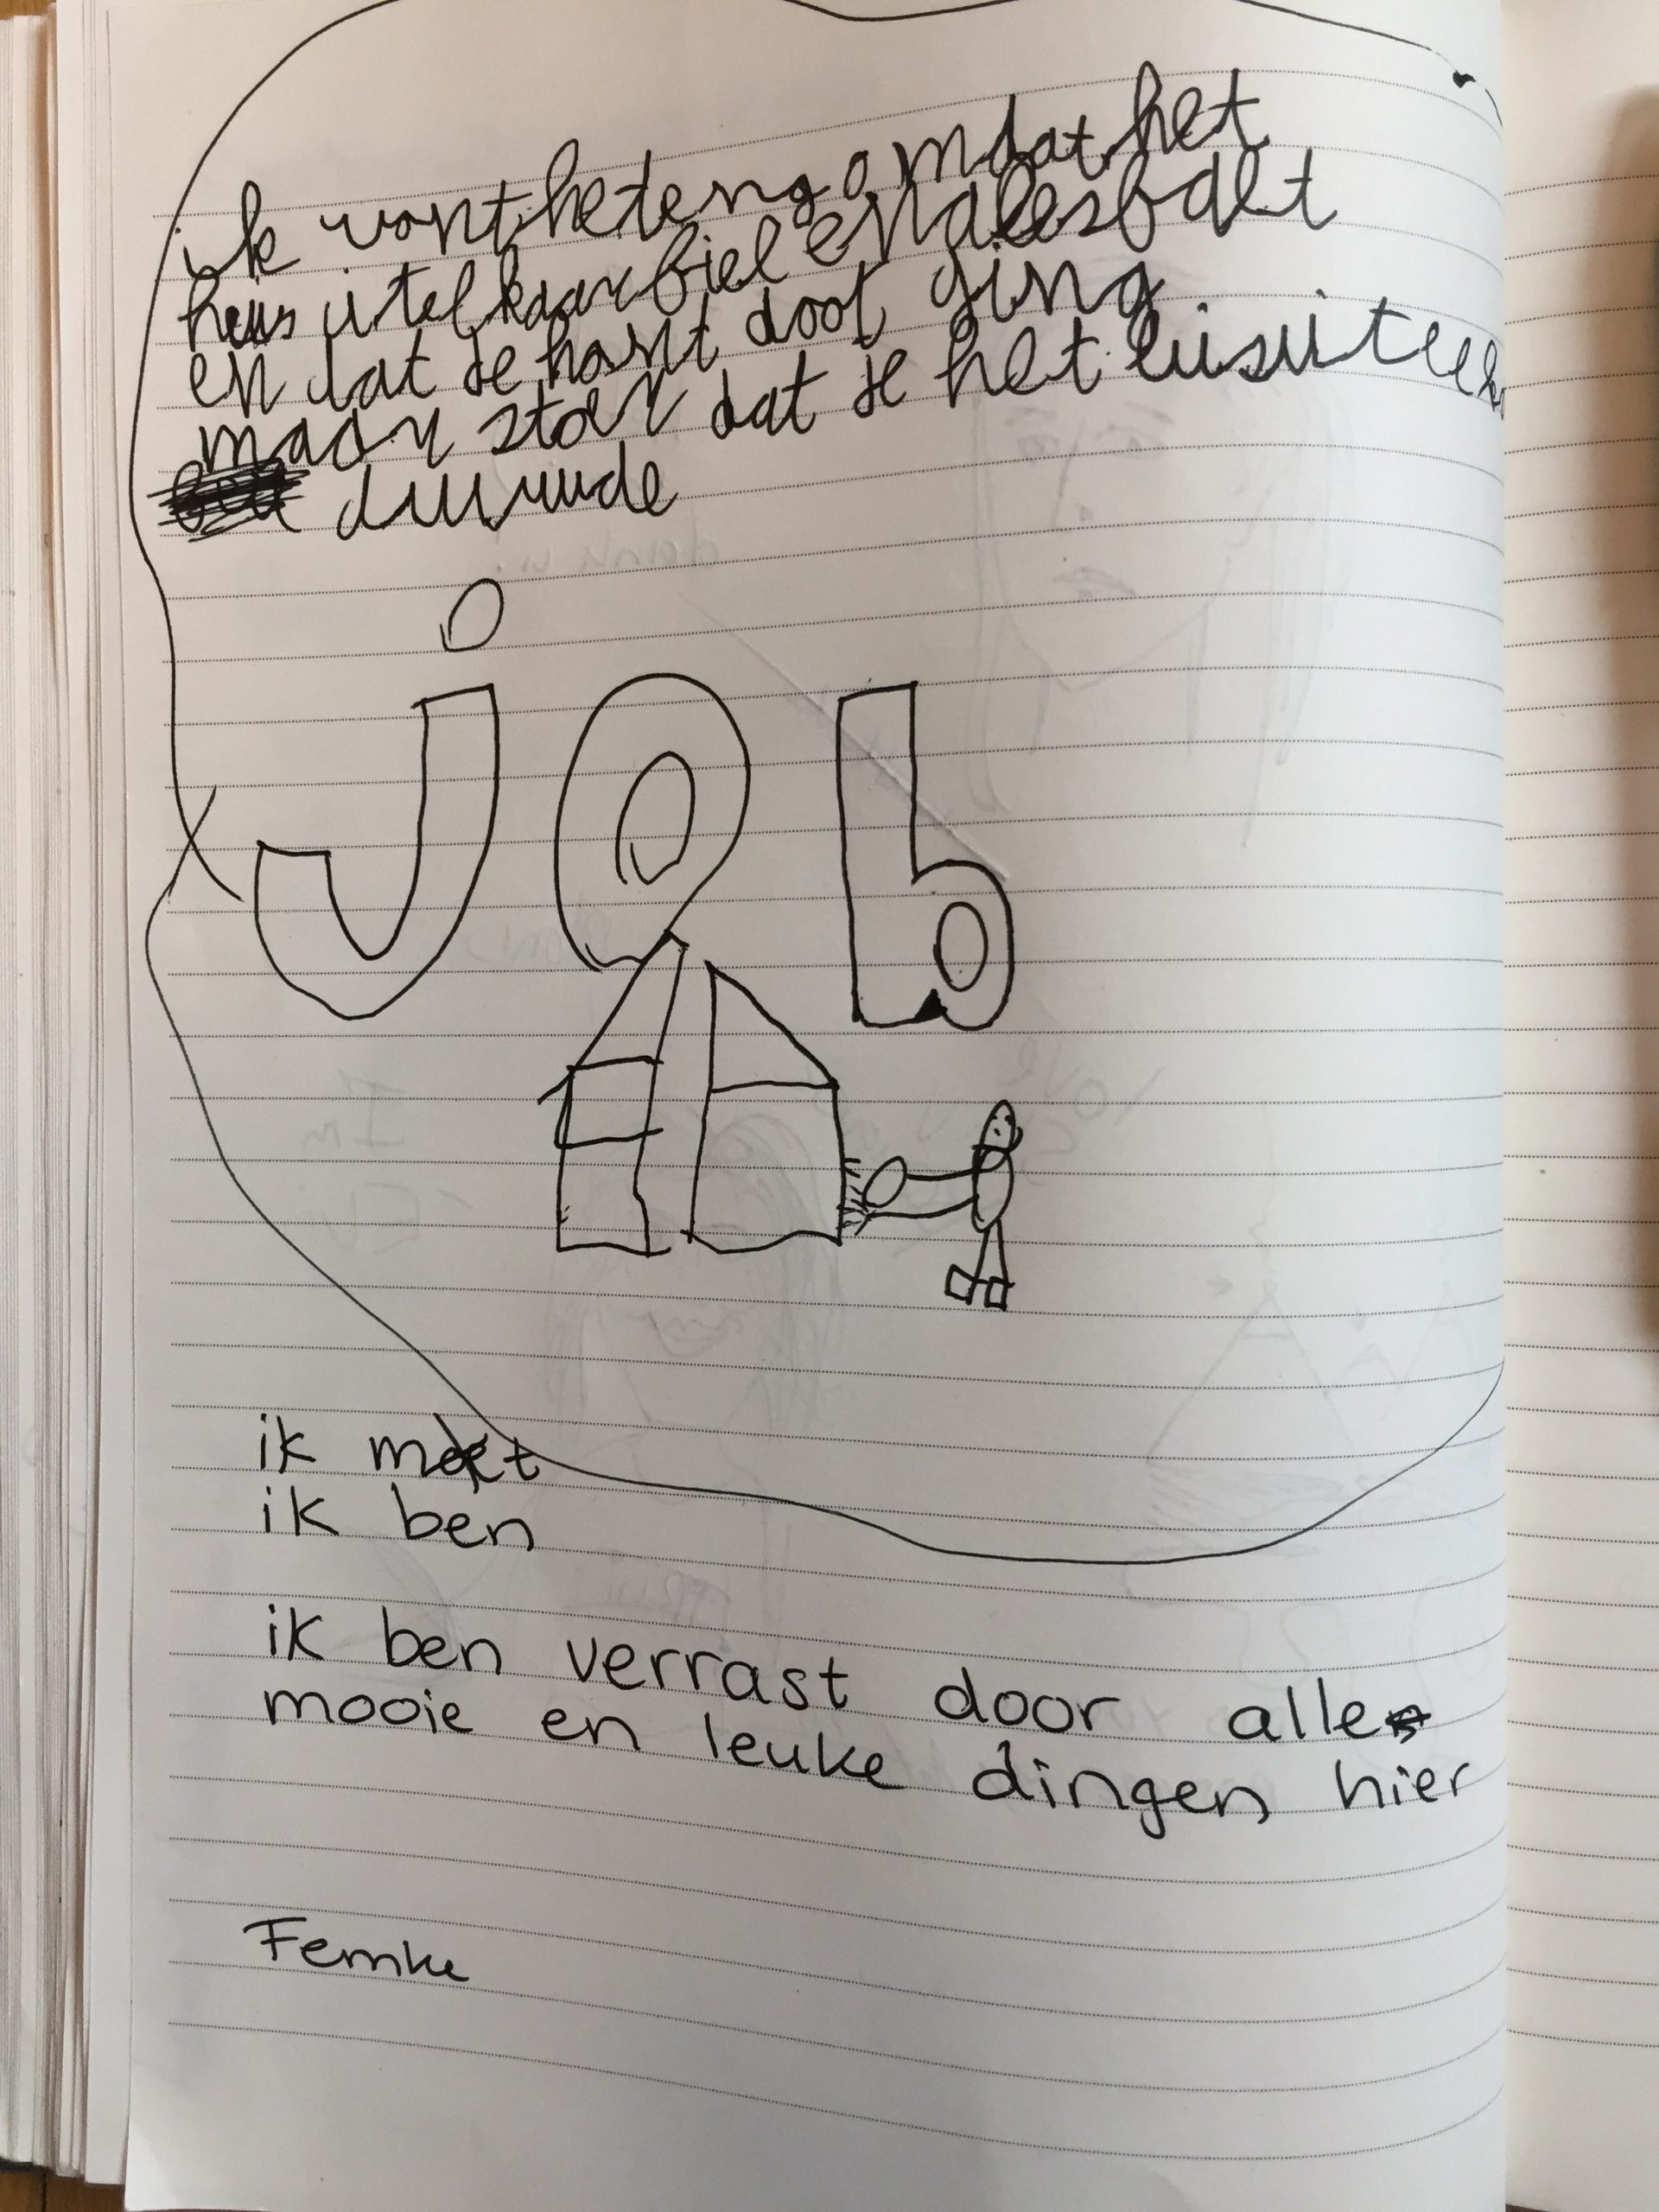 ik vont het eng omdat het
huis uitelkaar fiel en alles
en dat je hont doot ging
maar stoer dat je het
duuwde
job
ik moet
ik ben
ik ben verrast door alle
mooie en leuke dingen hier
Femke